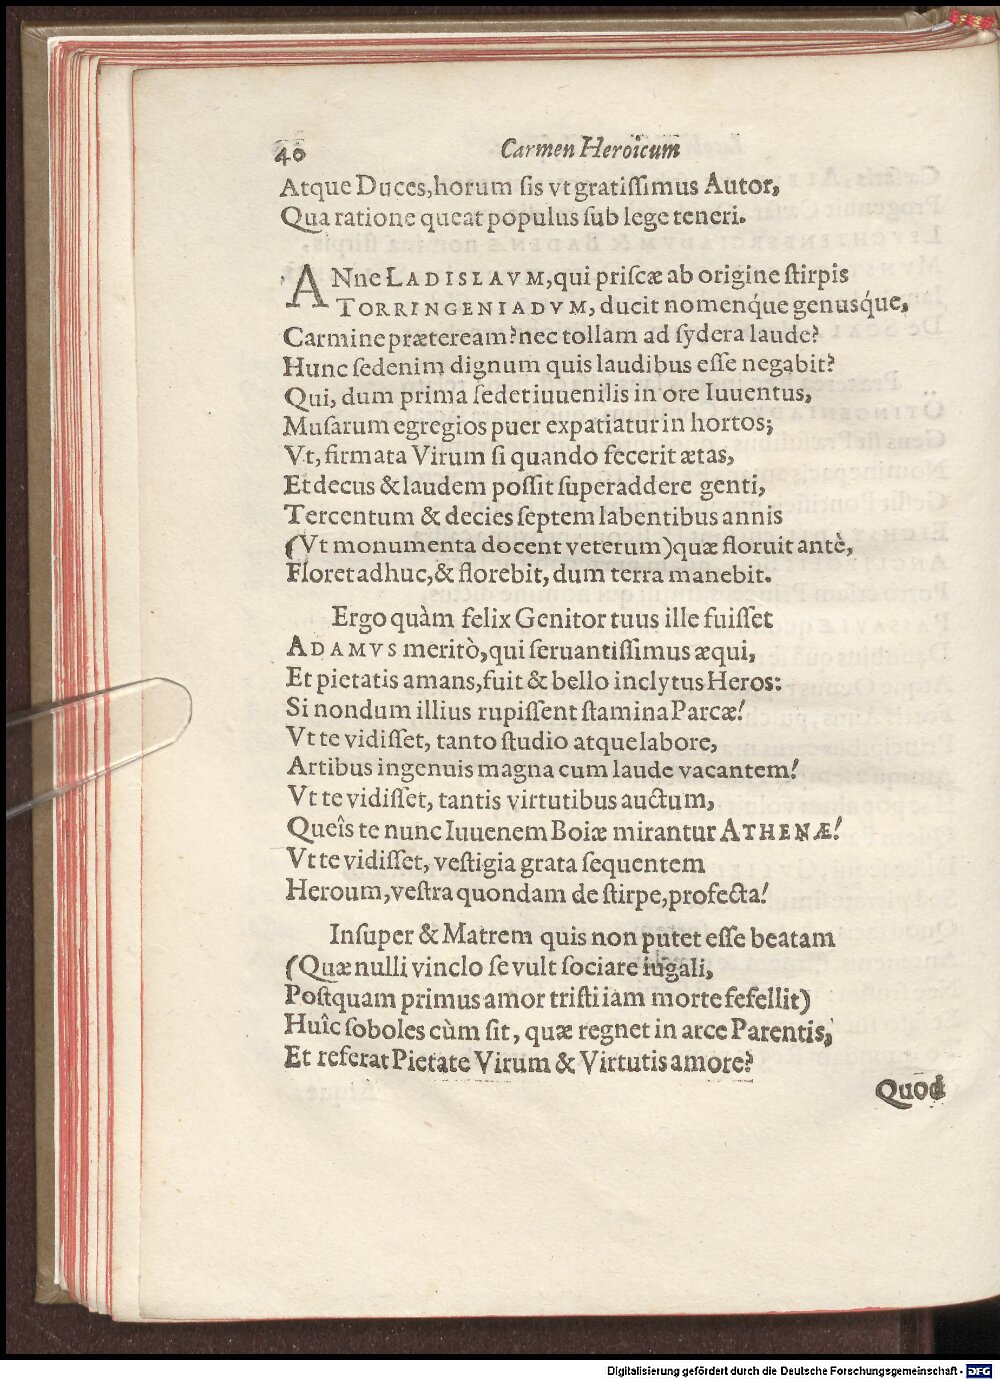 40 Carmen Heroicum
Atque Duces, horum sis vt gratissimus Autor,
Qua ratione queat populus sub lege teneri.
ANne LADISLAVM, qui priscæ ab origine stirpis
TORRINGENIADVM, ducit nomenq́ue genusq́ue,
Carmine præteream? nec tollam ad sydera laude?
Hunc sedenim dignum quis laudibus esse negabit?
Qui, dum prima sedet iuuenilis in ore Iuuentus,
Musarum egregios puer expatiatur in hortos;
Vt, firmata Virum si quando fecerit ætas,
Et decus & laudem possit superaddere genti,
Tercentum & decies septem labentibus annis
(Vt monumenta docent veterum) quæ floruit antè,
Floret adhuc, & florebit, dum terra manebit.
Ergo quàm felix Genitor tuus ille fuisset
ADAMVS meritò, qui seruantissimus æqui,
Et pietatis amans, fuit & bello inclytus Heros:
Si nondum illius rupissent stamina Parcæ!
Vt te vidisset, tanto studio atque labore,
Artibus ingenuis magna cum laude vacantem!
Vt te vidisset, tantis virtutibus auctum,
Queîs te nunc Iuuenem Boiæ mirantur ATHENÆ!
Vt te vidisset, vestigia grata sequentem
Heroum, vestra quondam de stirpe, profecta!
Insuper & Matrem quis non putet esse beatam
(Quæ nulli vinclo se vult sociare iugali,
Postquam primus amor tristi iam morte fefellit)
Huîc soboles cùm sit, quæ regnet in arce Parentis,
Et referat Pietate Virum & Virtutis amore?
Quod
Digitalisierung gefördert durch die Deutsche Forschungsgemeinschaft - DFG